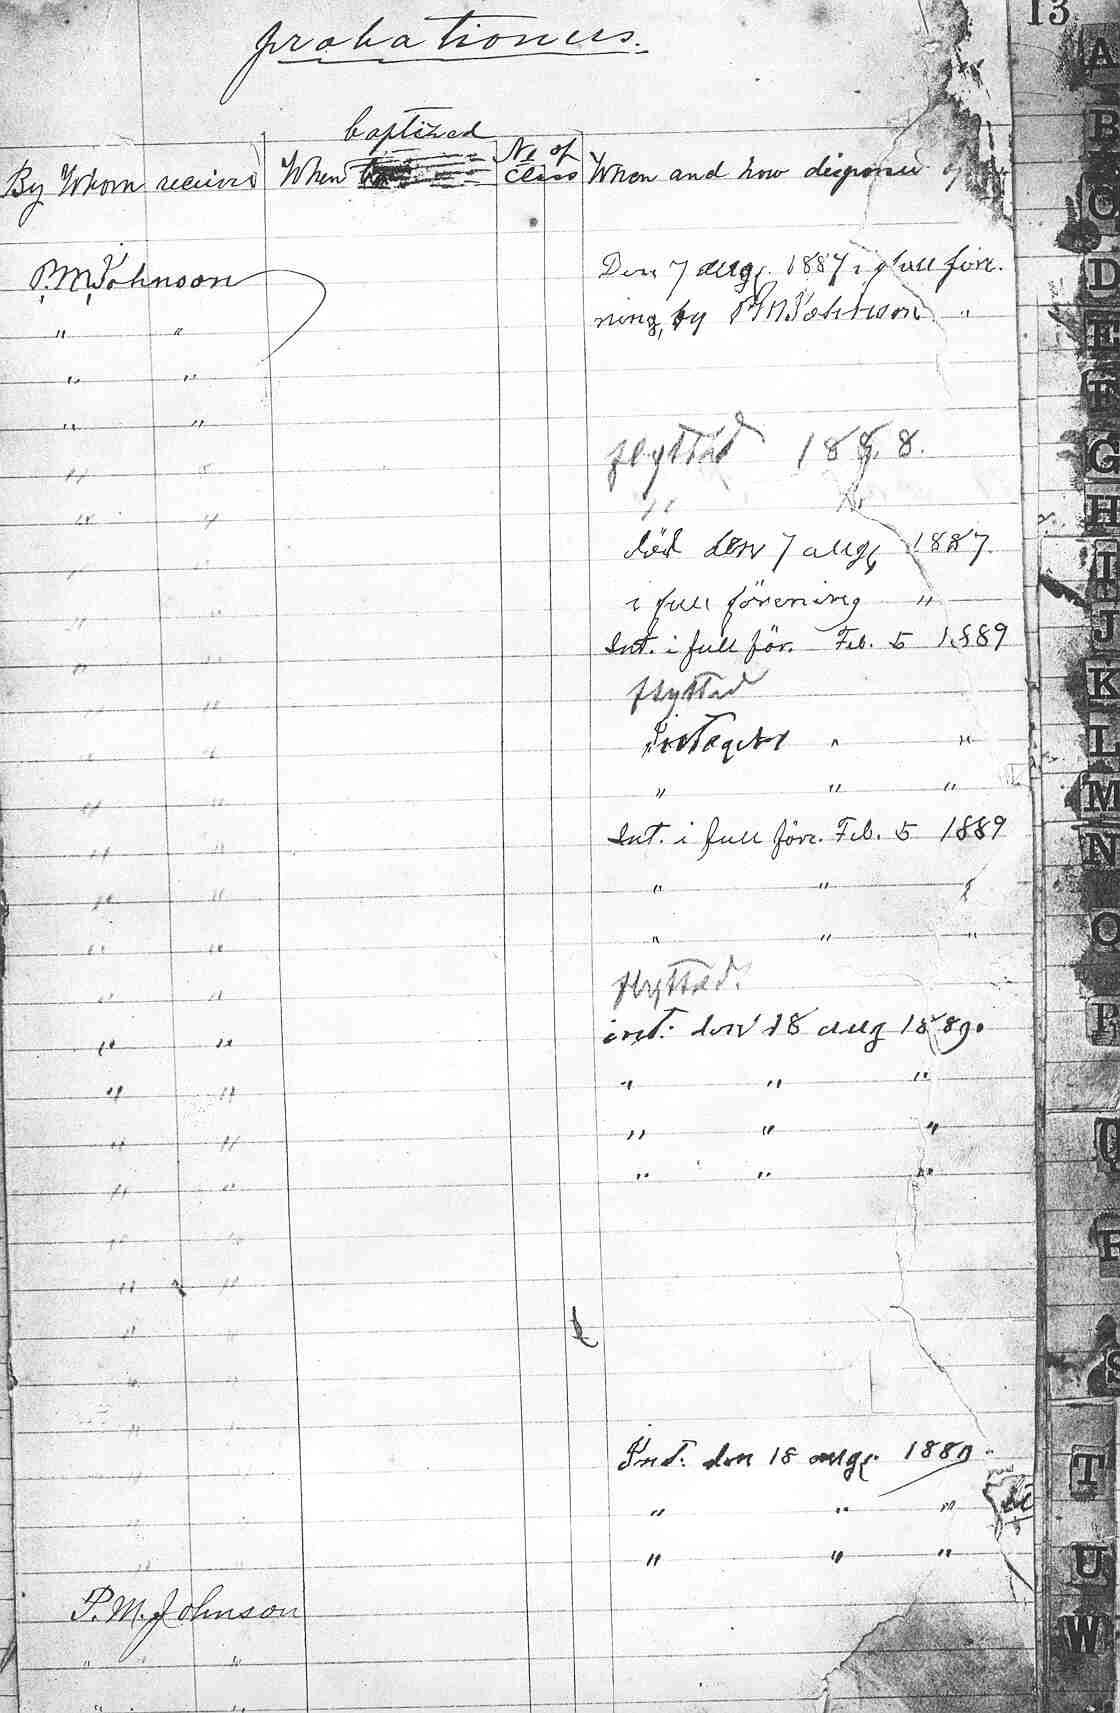 13
probationers.
baptized
By Whom received When No of class When and how disposed of
P. M. Johnson Den 7 aug. 1887 i full före-
" " ning, by P M Johnson "
" "
" "
" " flyttad 1888.
" " "
" " död den 7 aug, 1887.
" " i full förening "
" " Int. i full för. Feb. 5 1889
" " flyttad
" " Intagen " "
" " " " "
" " Int. i full före. Feb. 5 1889
" " " " "
" " " " "
" " flyttad.
" " int: den 18 aug 1889.
" " " " "
" " " " "
" " " " "
" "
" "
" "
" "
" "
" " Int: den 18 aug. 1889.
" " " " "
" " " " "
P. M. Johnson
" " "
" "
A
B
C
D
E
F
G
H
I
J
K
L
M
N
O
P
S
T
U
W